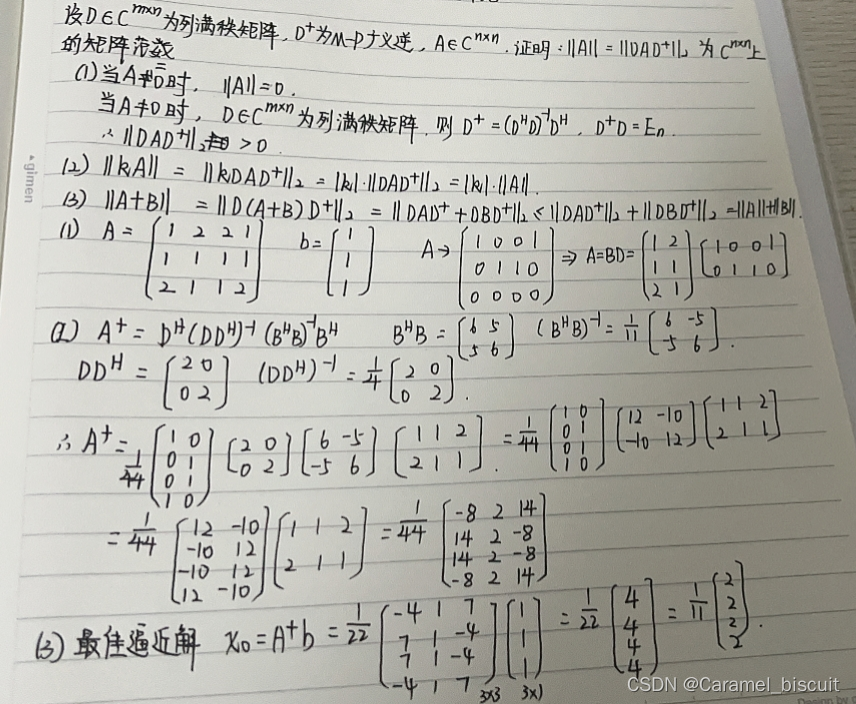 设D∈C^{m×n}为列满秩矩阵, D⁺为M-P广义逆, A∈C^{n×n}. 证明: ||A|| = ||DAD⁺||₂ 为 C^{n×n}上
的矩阵范数
(1) 当A=0时, ||A||=0.
当A≠0时, D∈C^{m×n}为列满秩矩阵, 则 D⁺=(D^HD)⁻¹D^H, D⁺D=Eₙ.
∴ ||DAD⁺||₂ >0
(2) ||kA|| = ||kDAD⁺||₂ = |k|·||DAD⁺||₂ = |k|·||A||.
(3) ||A+B|| = ||D(A+B)D⁺||₂ = ||DAD⁺+DBD⁺||₂ < ||DAD⁺||₂ + ||DBD⁺||₂ = ||A||+||B||.
(1) A = [1 2 2 1; 1 1 1 1; 2 1 1 2] b = [1; 1; 1] A→ [1 0 0 1; 0 1 1 0; 0 0 0 0] ⇒ A=BD= [1 2; 1 1; 2 1] [1 0 0 1; 0 1 1 0]
(2) A⁺ = D^H(DD^H)⁻¹(B^HB)⁻¹B^H B^HB = [6 5; 5 6] (B^HB)⁻¹ = 1/11 [6 -5; -5 6].
DD^H = [2 0; 0 2] (DD^H)⁻¹ = 1/4 [2 0; 0 2].
∴ A⁺ = 1/44 [1 0; 0 1; 0 1; 1 0] [2 0; 0 2] [6 -5; -5 6] [1 1 2; 2 1 1]. = 1/44 [1 0; 0 1; 0 1; 1 0] [12 -10; -10 12] [1 1 2; 2 1 1]
= 1/44 [12 -10; -10 12; -10 12; 12 -10] [1 1 2; 2 1 1] = 1/44 [-8 2 14; 14 2 -8; 14 2 -8; -8 2 14]
(3) 最佳逼近解 x₀=A⁺b = 1/22 [-4 1 7; 7 1 -4; 7 1 -4; -4 1 7] 3×3 [1; 1; 1] 3×1 = 1/22 [4; 4; 4; 4] = 1/11 [2; 2; 2; 2].
gimen
CSDN @Caramel_biscuit